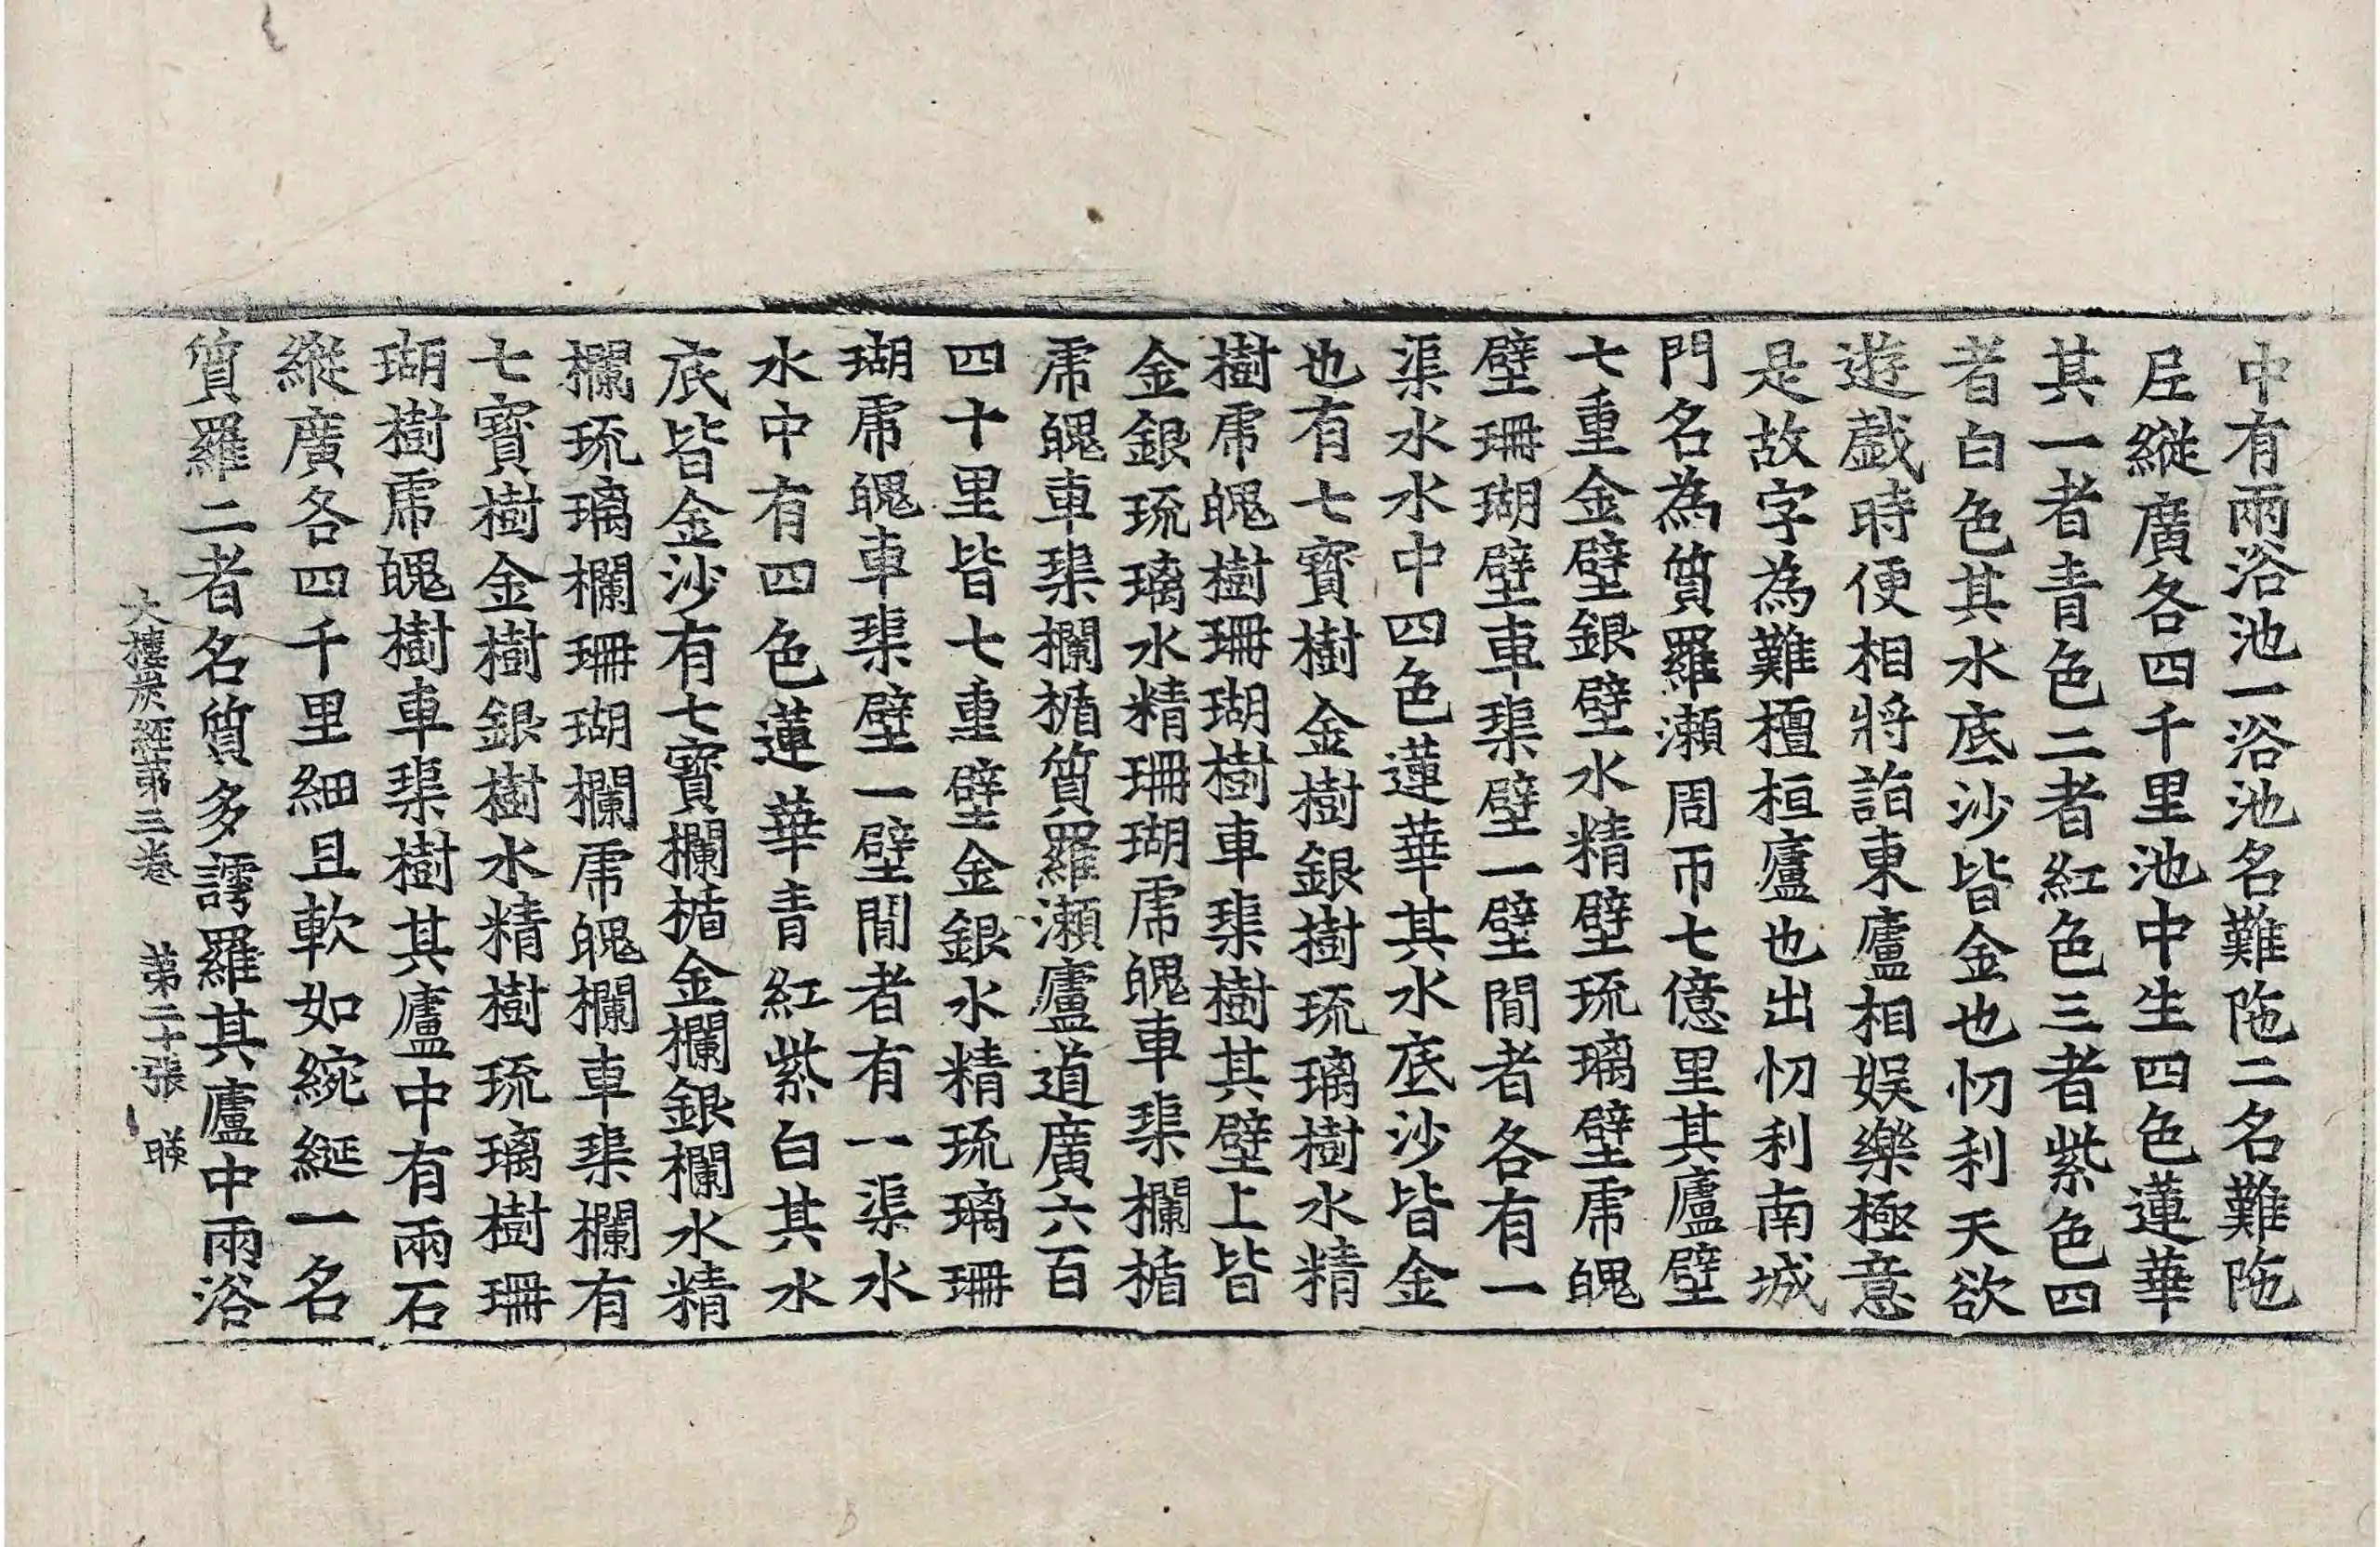 中有兩浴池一浴池名難陁二名難陁
𡰱縱廣各四千里池中生四色蓮華
其一者青色二者紅色三者紫色四
者白色其水底沙皆金也忉利天欲
遊戱時便相將詣東廬相娛樂極意
是故字為難檀桓廬也出忉利南城
門名為質羅瀬周帀七億里其廬壁
七重金壁銀壁水精壁琉璃壁虎魄
壁珊瑚壁車𤦲壁一壁閒者各有一
渠水水中四色蓮華其水底沙皆金
也有七寳樹金樹銀樹琉璃樹水精
樹虎魄樹珊瑚樹車𤦲樹其壁上皆
金銀琉璃水精珊瑚虎魄車𤦲欄楯
虎魄車𤦲欄楯質羅瀬廬道廣六百
四十里皆七重壁金銀水精琉璃珊
瑚虎魄車𤦲壁一壁閒者有一渠水
水中有四色蓮華青紅紫白其水
底皆金沙有七寳欄楯金欄銀欄水精
欄琉璃欄珊瑚欄虎魄欄車𤦲欄有
七寳樹金樹銀樹水精樹琉璃樹珊
瑚樹虎魄樹車𤦲樹其廬中有兩石
縱廣各四千里細且軟如綩綖一名
質羅二者名質多謣羅其廬中兩浴
大樓炭經苐三卷 苐二十張